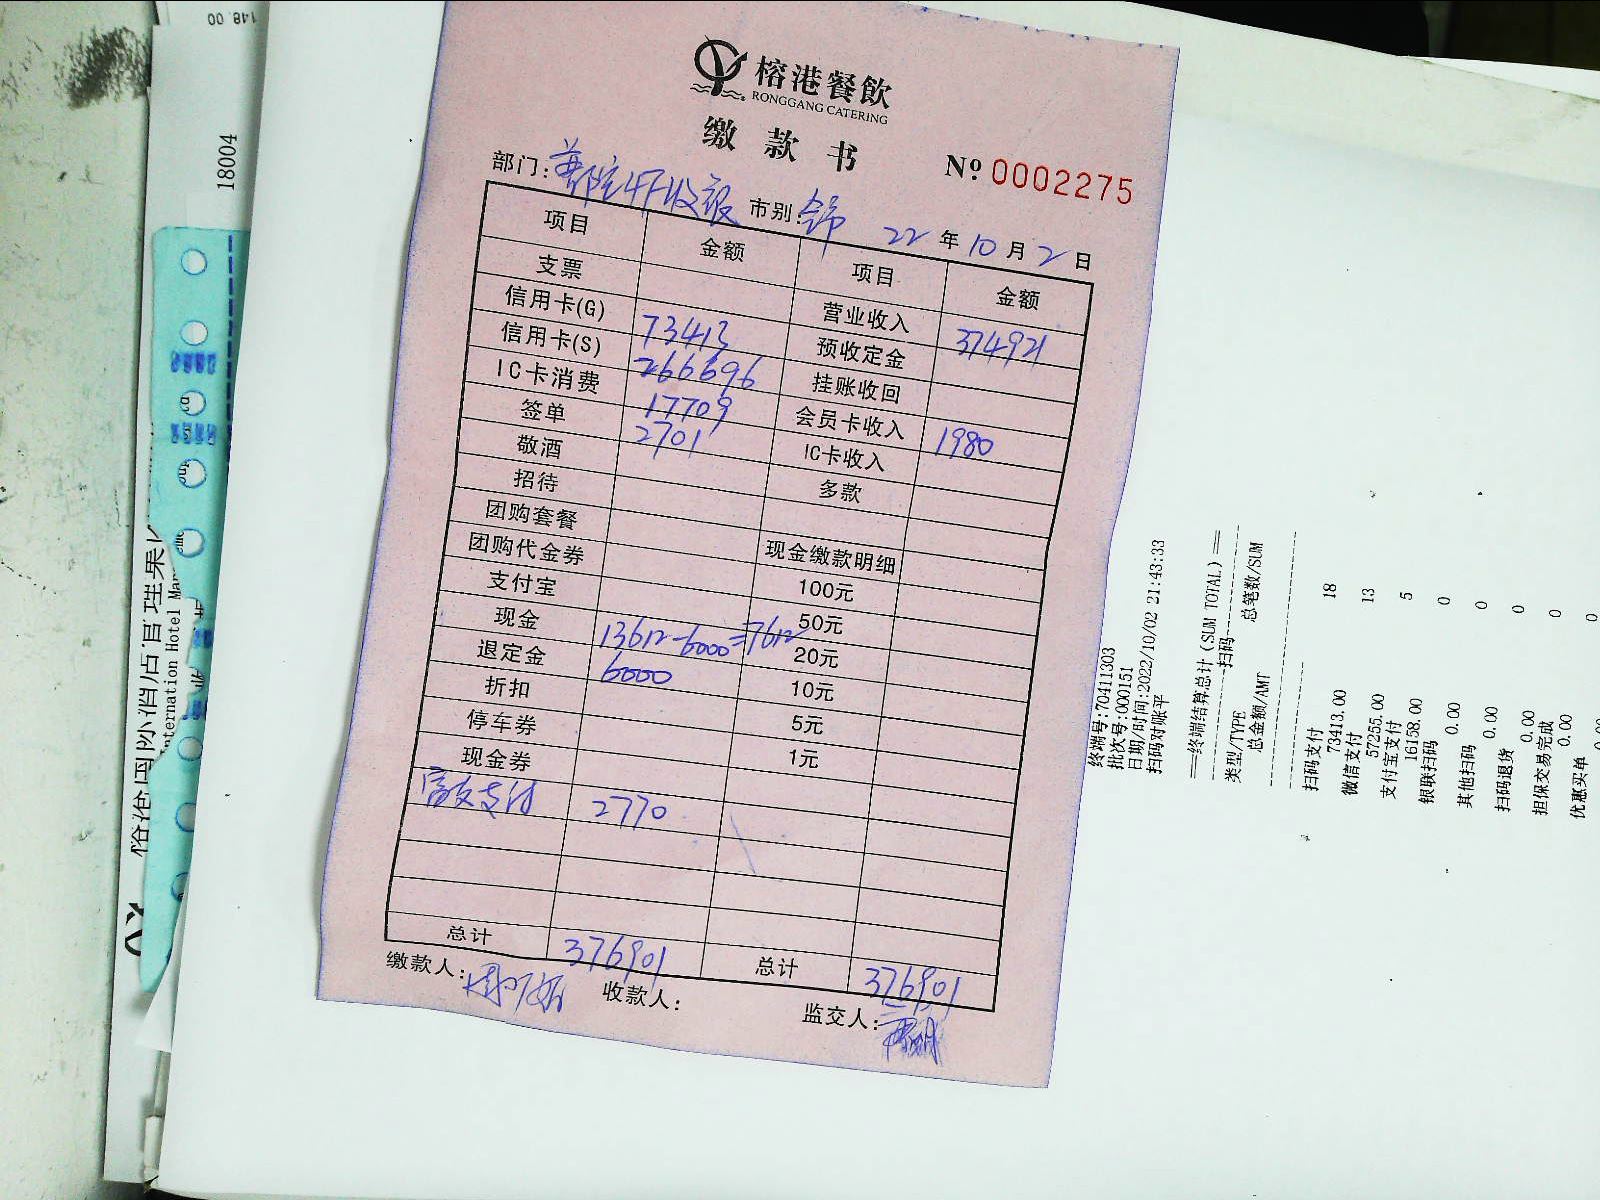 榕港餐飲
RONGGANG CATERING
缴款书
№ 0002275
部门: 市别: 22 年 10 月 2 日
项目 金额 项目 金额
支票 营业收入 374921
信用卡(G) 73413 预收定金
信用卡(S) 266696 挂账收回
IC卡消费 17709 会员卡收入 1980
签单 2701 IC卡收入
敬酒 多款
招待
团购套餐 现金缴款明细
团购代金券 100元
支付宝 50元
现金 13612-6000=7612 20元
退定金 6000 10元
折扣 5元
停车券 1元
现金券
支付 2770
总计 376901 总计 376901
缴款人: 收款人: 监交人:
终端号:70411303
批次号:000151
日期/时间:2022/10/02 21:43:33
扫码对账平
==终端结算总计(SUM TOTAL)==
扫码
类型/TYPE 总笔数/SUM
总金额/AMT
扫码支付 18
73413.00
微信支付 13
57255.00
支付宝支付 5
16158.00
银联扫码 0
0.00
其他扫码 0
0.00
扫码退货 0
0.00
担保交易完成 0
0.00
优惠买单 0
0.00
18004
148.00
International Hotel Ma